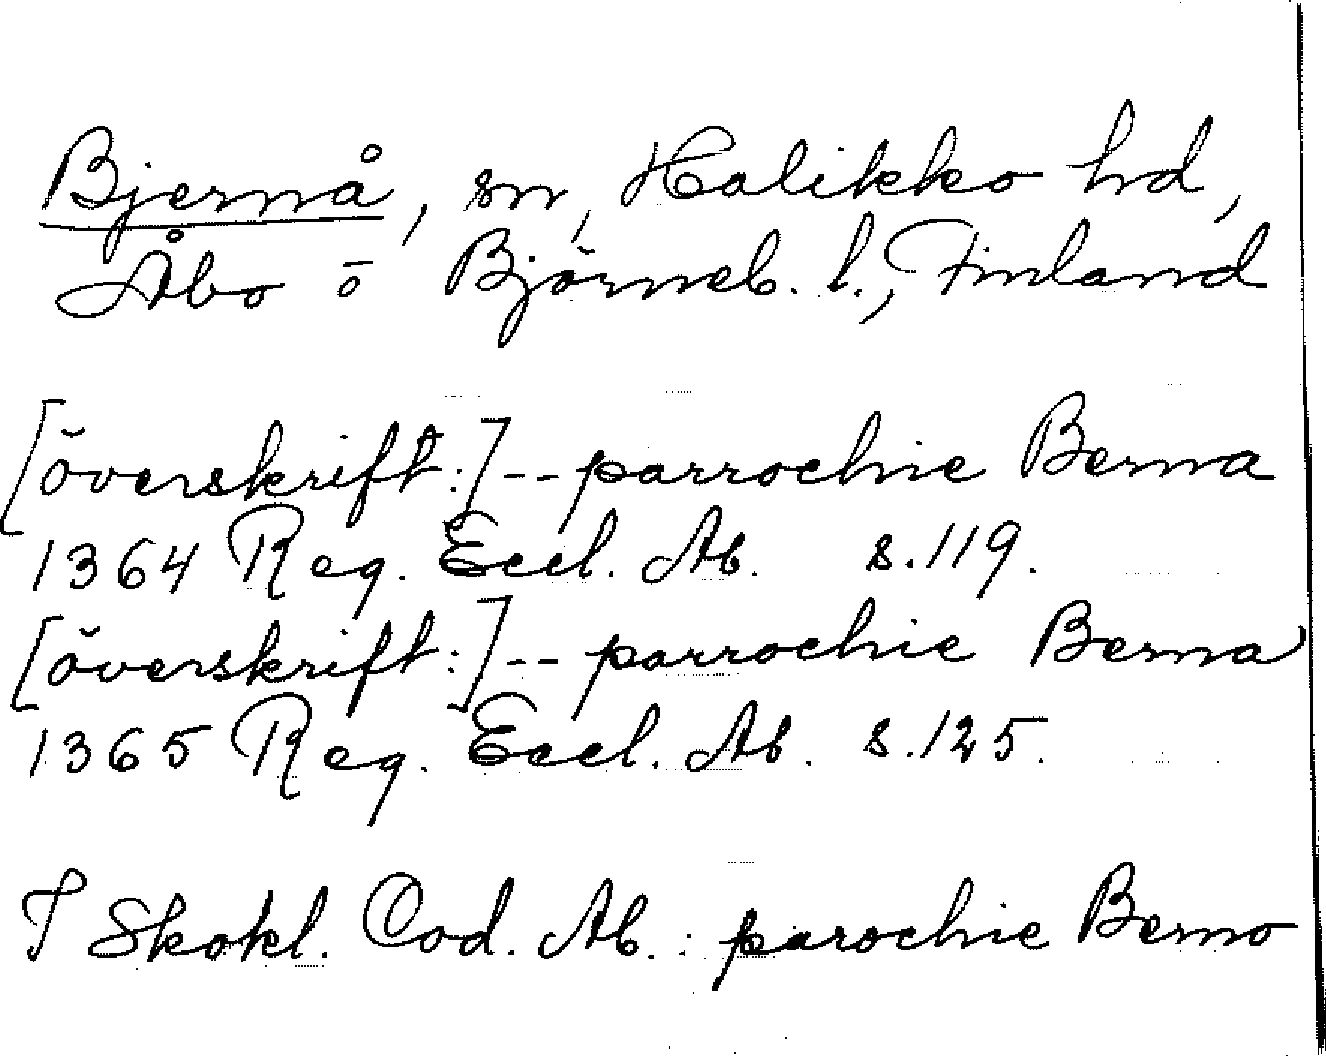 Bjernå, sn, Halikko hd,
Åbo o Björneb. l., Finland
[överskrift:] -- parrochie Berna
1364 Reg. Eccl. Ab. s. 119.
[överskrift:] -- parrochie Berna
1365 Reg. Eccl. Ab. s. 125.
I Skokl. Cod. Ab. : parochie Berno